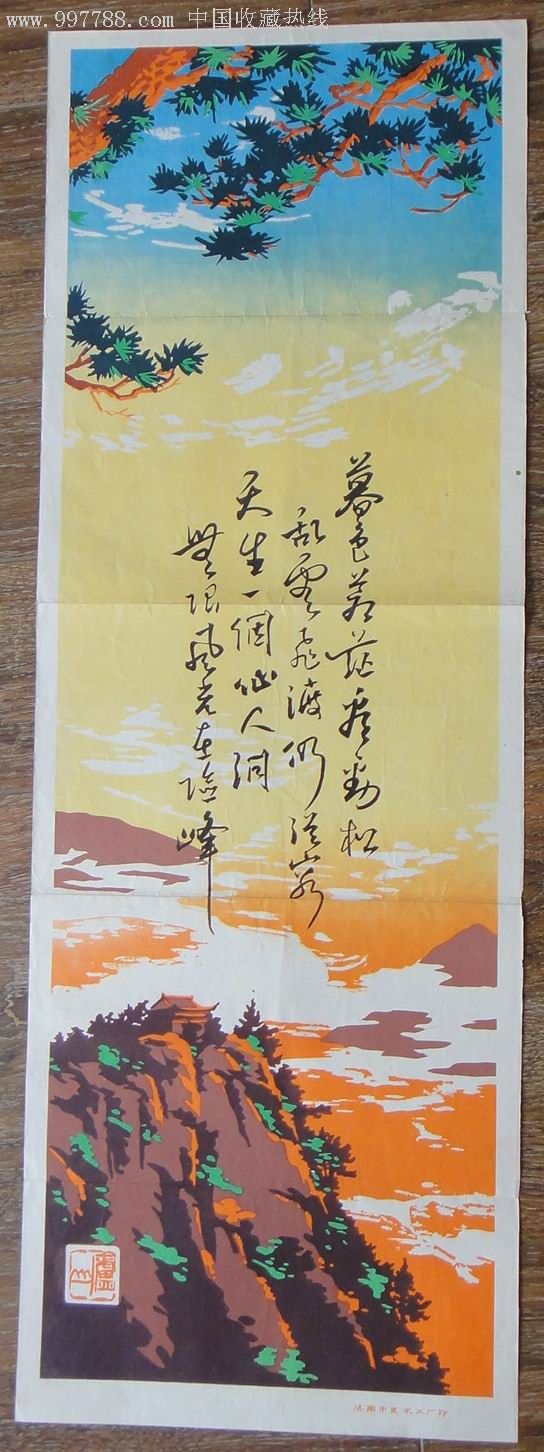 www.997788.com 中国收藏热线
暮色蒼茫看勁松
乱雲飛渡仍從容
天生一個仙人洞
無限風光在險峰
廬山
济南市美术工厂印